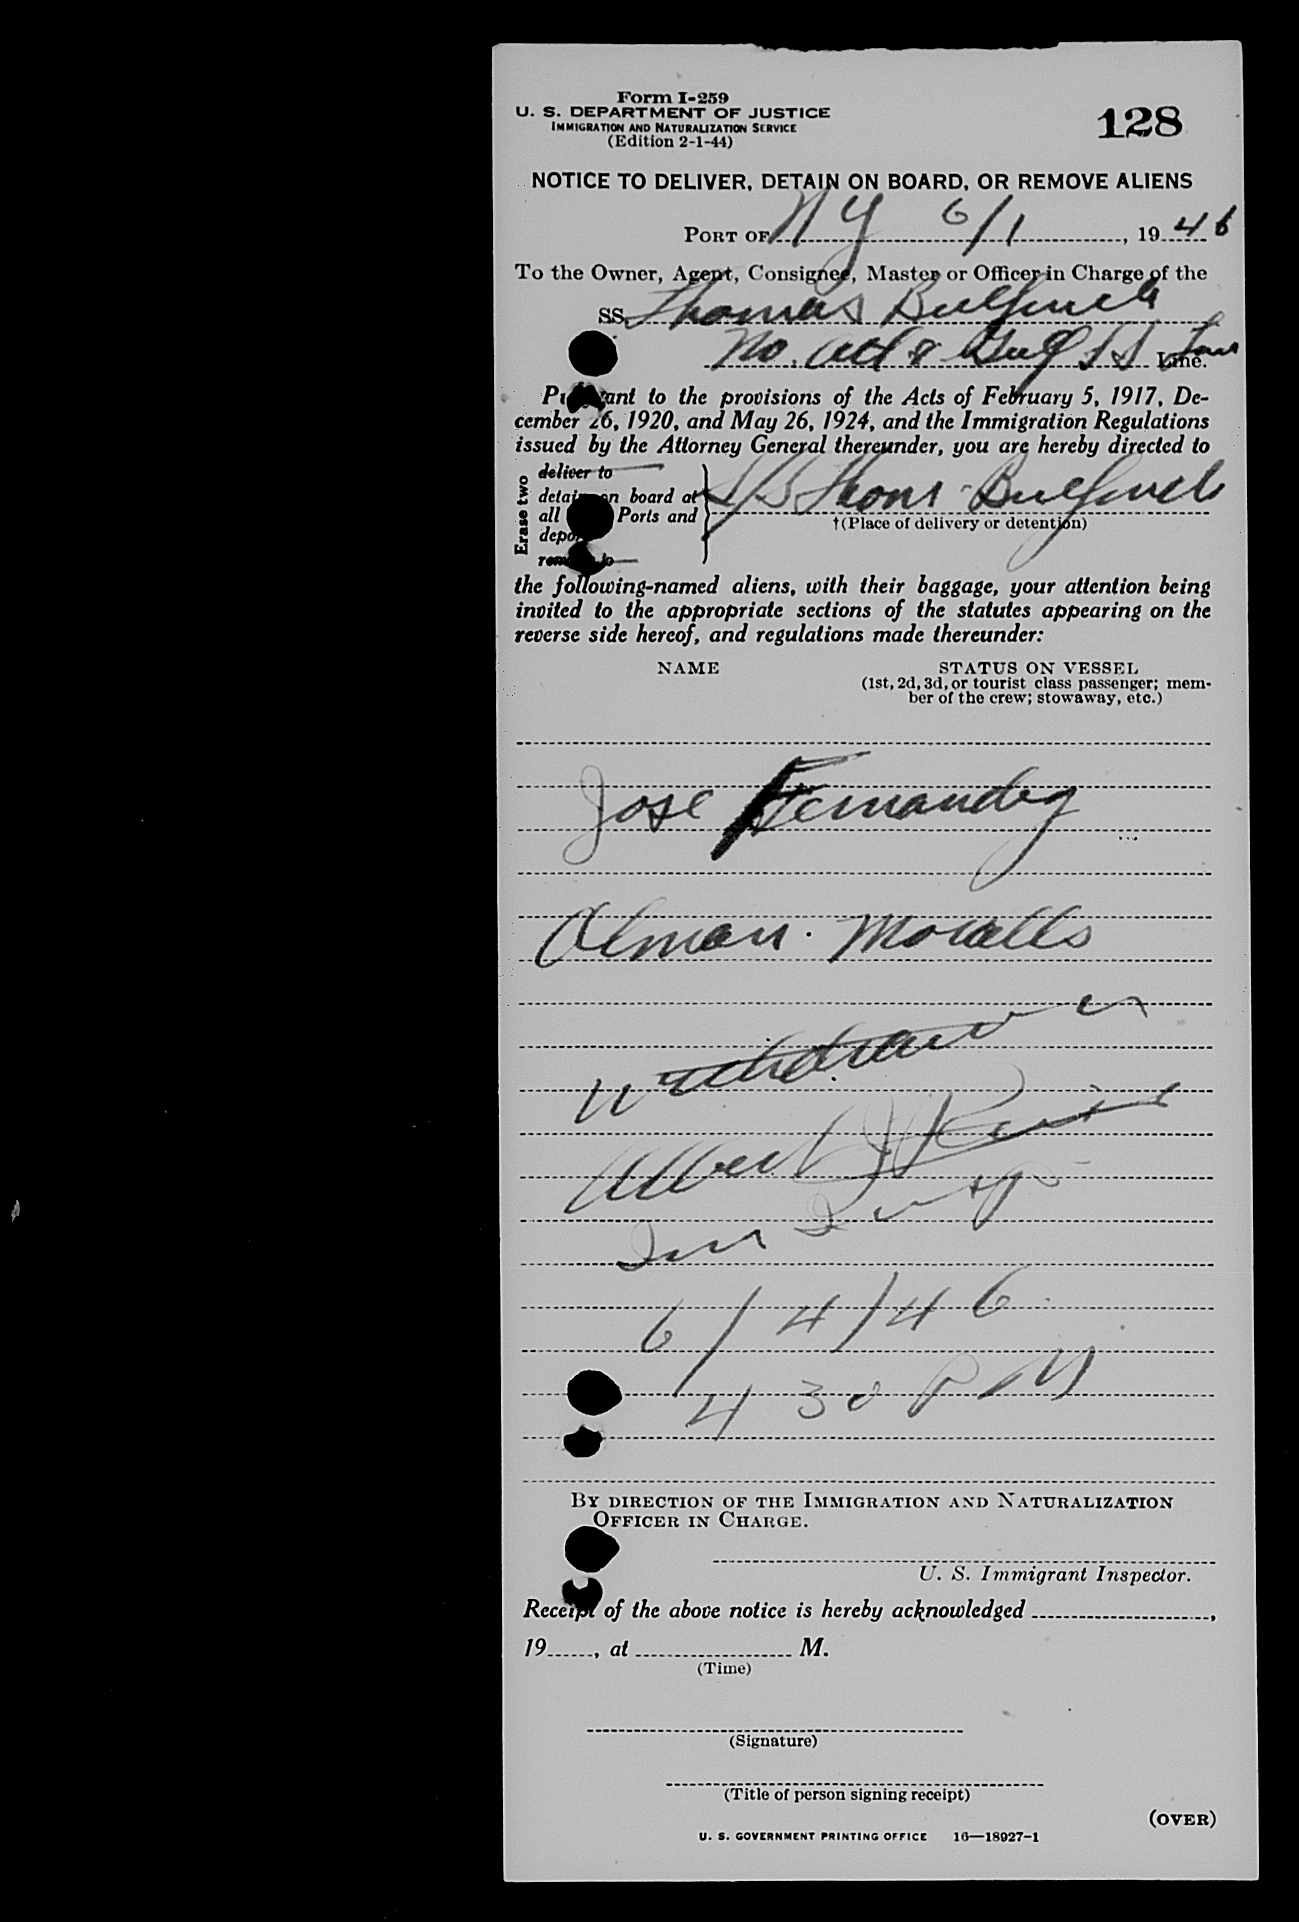 Form I-259
U. S. DEPARTMENT OF JUSTICE
IMMIGRATION AND NATURALIZATION SERVICE
(Edition 2-1-44)
128
NOTICE TO DELIVER, DETAIN ON BOARD, OR REMOVE ALIENS
PORT OF N Y 6/1, 1946
To the Owner, Agent, Consignee, Master or Officer in Charge of the
SS. Thomas Bulfinch
No. Atl & Gulf SS Line.
Pursuant to the provisions of the Acts of February 5, 1917, De-
cember 26, 1920, and May 26, 1924, and the Immigration Regulations
issued by the Attorney General thereunder, you are hereby directed to
Erase two
deliver to
detain on board at
all Ports and
remove to
S/S Thoms Bulfinch
†(Place of delivery or detention)
the following-named aliens, with their baggage, your attention being
invited to the appropriate sections of the statutes appearing on the
reverse side hereof, and regulations made thereunder:
NAME
STATUS ON VESSEL
(1st, 2d, 3d, or tourist class passenger; mem-
ber of the crew; stowaway, etc.)
Jose Fernandez
Olman Moralls
Withdrawn
Albert J
Imm Insp
6/4/46
4 30 PM
BY DIRECTION OF THE IMMIGRATION AND NATURALIZATION
OFFICER IN CHARGE.
U. S. Immigrant Inspector.
Receipt of the above notice is hereby acknowledged ,
19 , at M.
(Time)
(Signature)
(Title of person signing receipt)
(OVER)
U. S. GOVERNMENT PRINTING OFFICE 16—18927-1